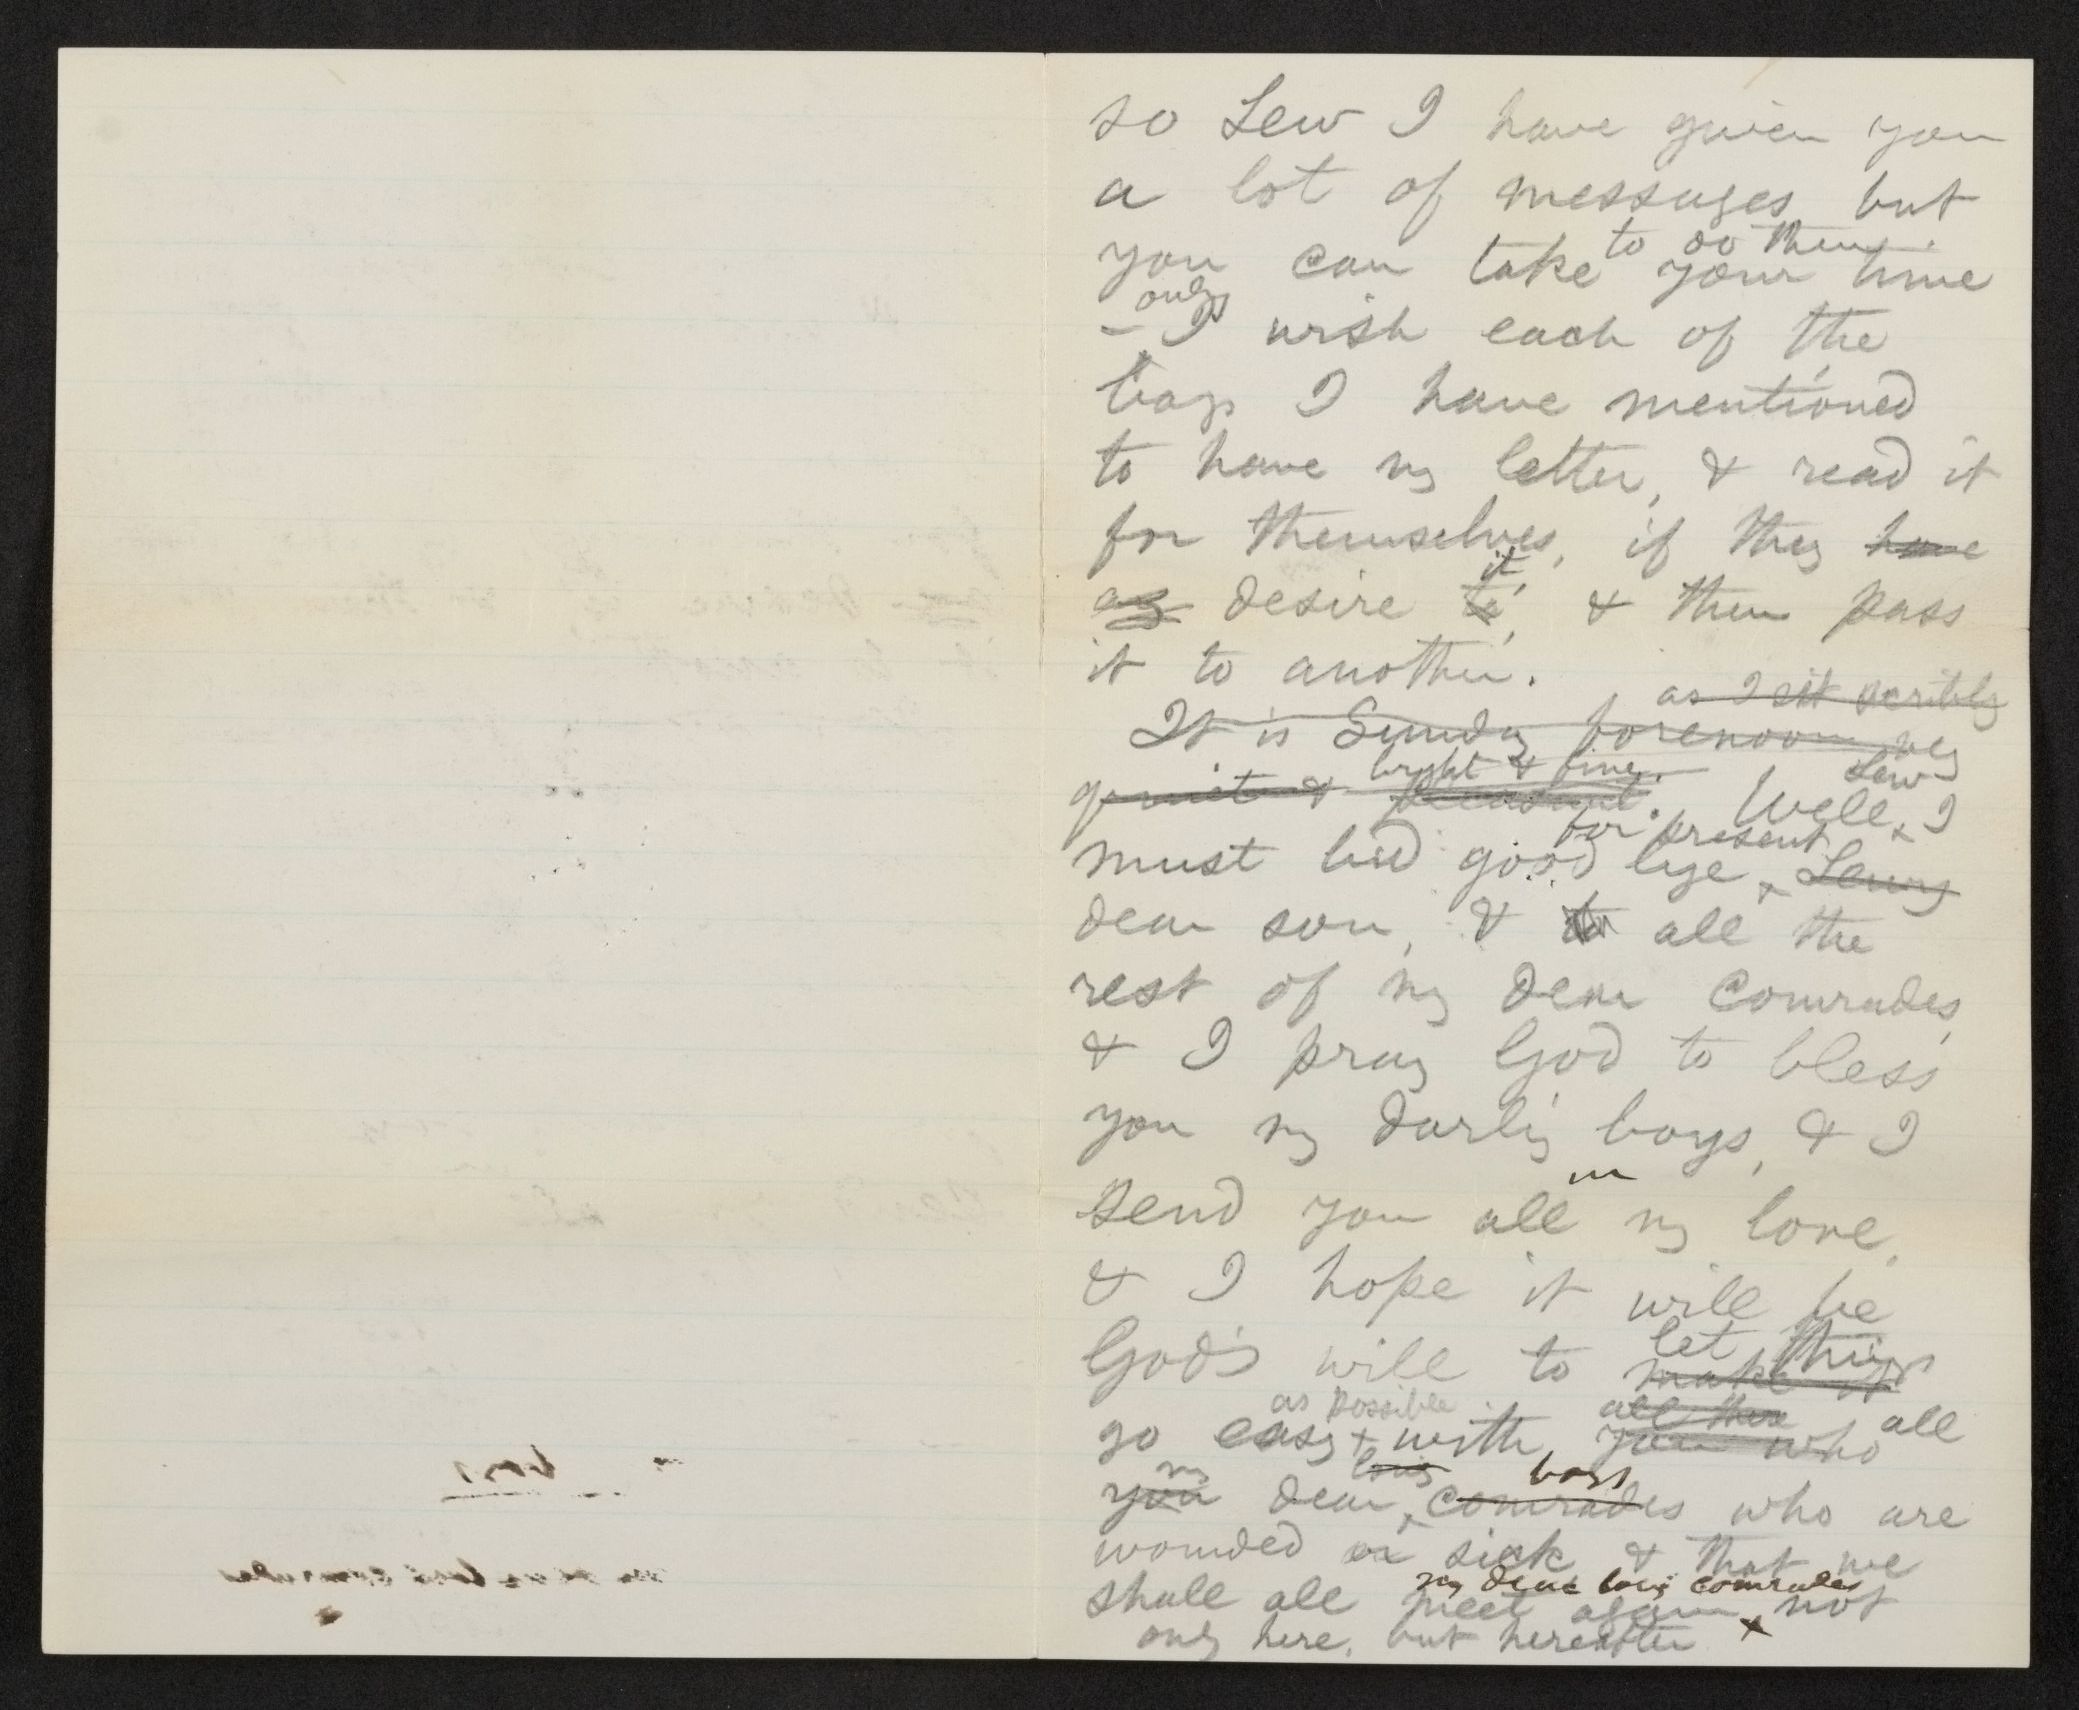 so Lew I have given you
a lot of messages but
you can take your time
to do them.
only
— I wish each of the
boys I have mentioned
to have my letter, & read it
for themselves, if they have
as desire to it, & then pass
it to another.
as I sit
It is Sunday forenoon very
bright & fine.
quiet & pleasant. Well, Lew I
for present
must bid good bye, Lewy
dear son, & to all the
rest of my dear comrades,
& I pray God to bless
you my darling boys, & I
send you all my love,
& I hope it will be
let things
God's will to make it
as possible all there all
go easy with you who
my loving boys
you dear comrades who are
wounded or sick, & that we
my dear loving comrades
shall all meet again, not
only here, but hereafter